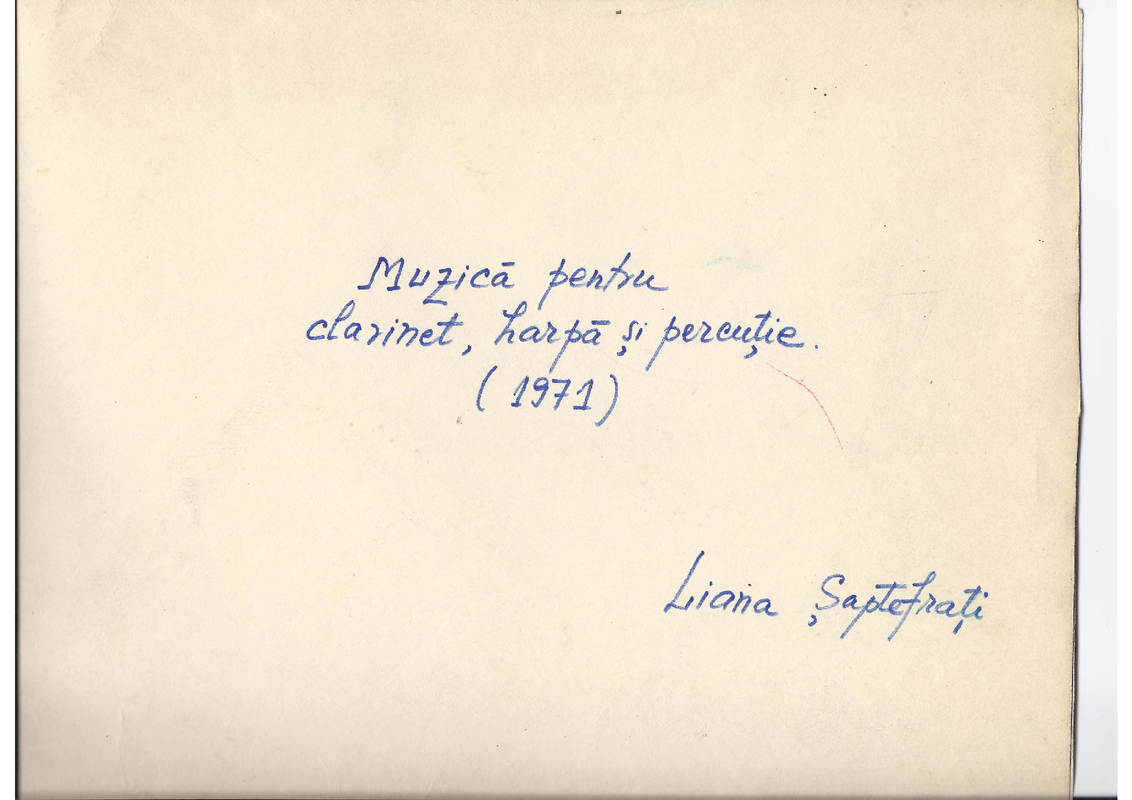 Muzică pentru
clarinet, harpă și percuție.
(1971)
Liana Șaptefrați